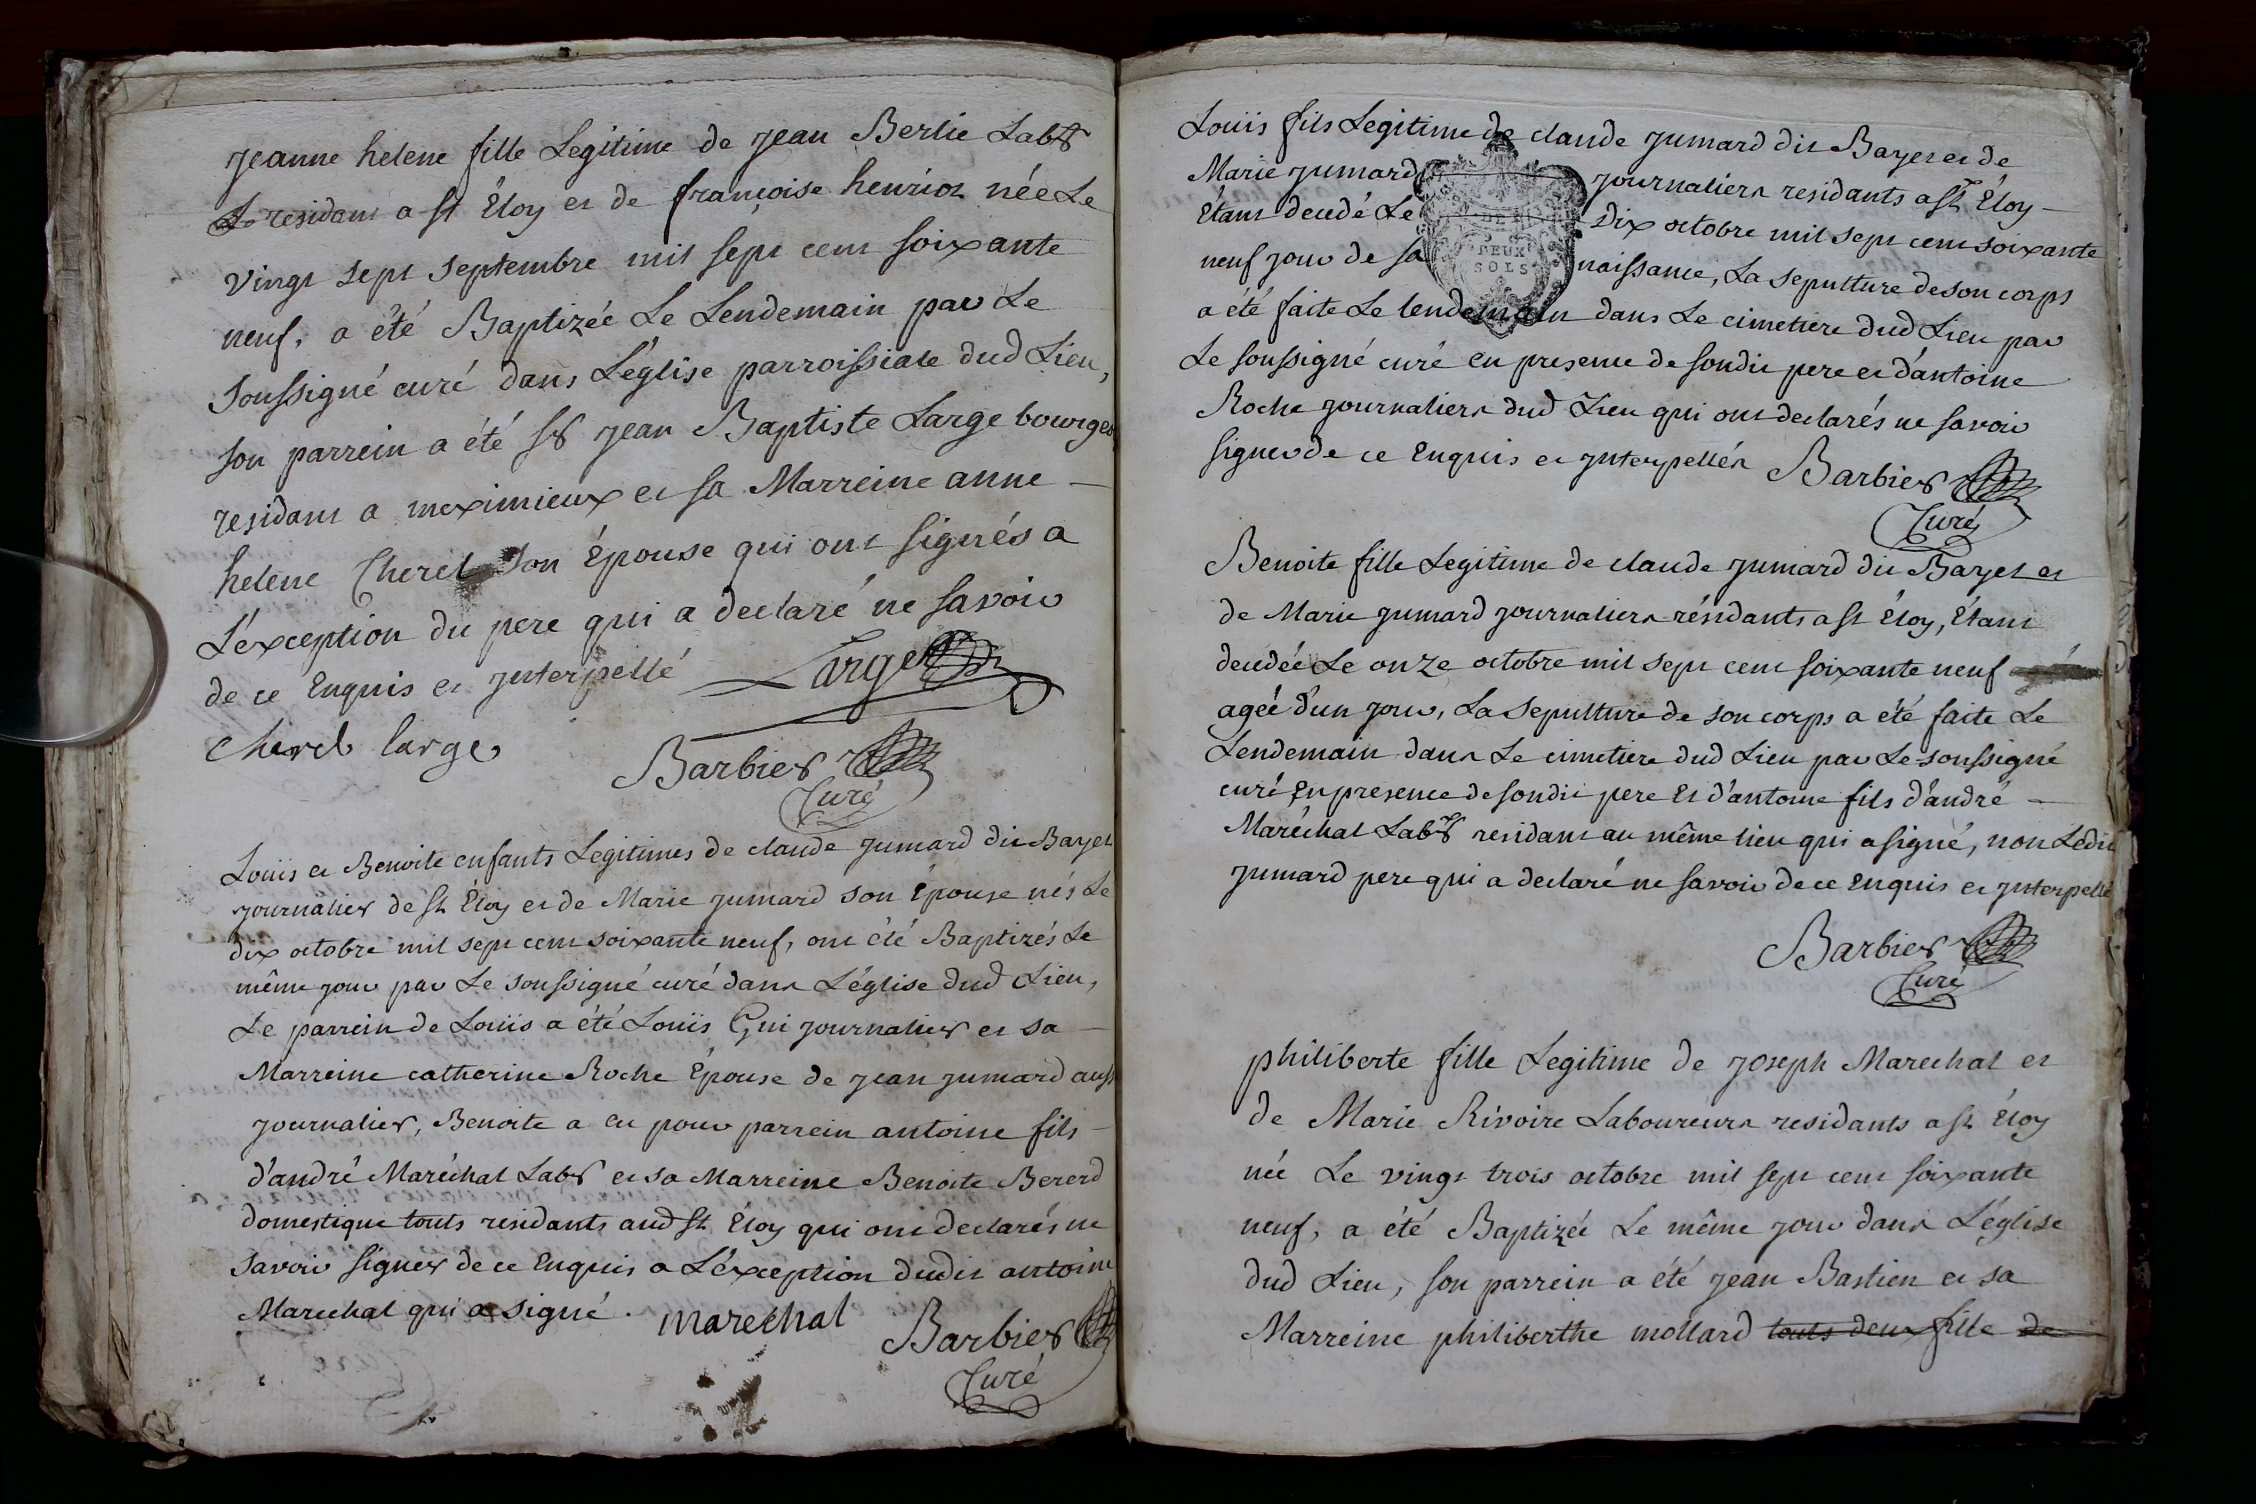 Jeanne helene fille Legitime de Jean Berlie Labr
residant a st Éloy et de françoise henrion née Le
vingt sept septembre mil sept cent soixante
neuf, a été Baptizée Le Lendemain par Le
soussigné curé dans L'église parroissiale dud Lieu,
son parrein a été sr jean Baptiste Large bourgeois
residant a meximieux et sa Marreine anne —
helene Cherel son Épouse qui ont signés a
L'éxception du pere qui a declaré ne savoir
de ce Enquis et Interpellé Large
cherel large
Barbier
Curé
Louis et Benoite enfants Legitimes de claude Jumard dit Bayet
journalier de st Éloy et de Marie jumard son Épouse nés Le
dix octobre mil sept cent soixante neuf, ont été Baptizés Le
même jour par Le soussigné curé dans L'église dud Lieu,
Le parrein de Louis a été Louis Gui journalier et sa —
Marreine catherine Roche Épouse de jean jumard aussi
journalier, Benoite a eu pour parrein antoine fils —
d'andré Maréchal Labr et sa Marreine Benoite Bererd
domestique touts residants aud st Éloy qui ont declarés ne
savoir signer de ce Enquis a L'éxception dudit antoine
Marechal qui a signé. marechal
Barbier
Curé
Louis fils Legitime de claude jumard dit Bayet et de
Marie jumard journaliers residants a st Éloy —
Étant decedé Le dix octobre mil sept cent soixante
neuf jour de sa naissance, La sepulture de son corps
DEUX
SOLS
a été faite Le lendemain dans Le cimetiere dud Lieu par
Le soussigné curé en presence de sondit pere et d'antoine
Roche journaliers dud Lieu qui ont declarés ne savoir
signer de ce Enquis et Interpellés Barbier
Curé
Benoite fille Legitime de claude jumard dit Bayet et
de Marie jumard journaliers résidants a st Éloy, Étant
decedée Le onze octobre mil sept cent soixante neuf
agée d'un jour, La sepulture de son corps a été faite Le
Lendemain dans Le cimetiere dud Lieu par Le soussigné
curé En presence de sondit pere Et d'antoine fils d'andré —
Maréchal Labr residant au même lieu qui a signé, non Ledit
jumard pere qui a declaré ne savoir de ce Enquis et Interpellé
Barbier
Curé
philiberte fille Legitime de joseph Marechal et
de Marie Rivoire Laboureurs residants a st Éloy
née Le vingt trois octobre mil sept cent soixante
neuf, a été Baptizée Le même jour dans L'église
dud Lieu, son parrein a été jean Bastien et sa
Marreine philiberthe mollard touts deux fille de